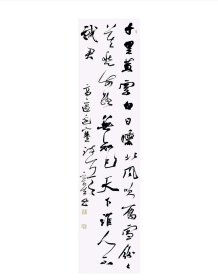 千里黄雲白日曛北風吹雁雪紛々
莫愁前路無知己天下誰人不
識君
高適